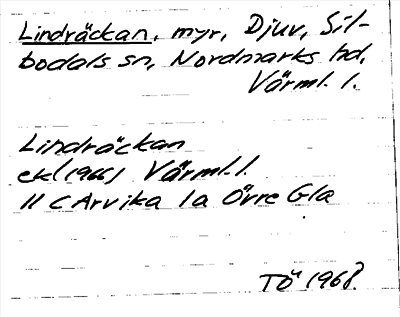 Lindräckan, myr, Djuv, Sil-
bodals sn, Nordmarks hd,
Värml. l.
Lindräckan
ekl (1966) Värml. l.
11 C Arvika 1a Övre Gla
TÖ 1968.